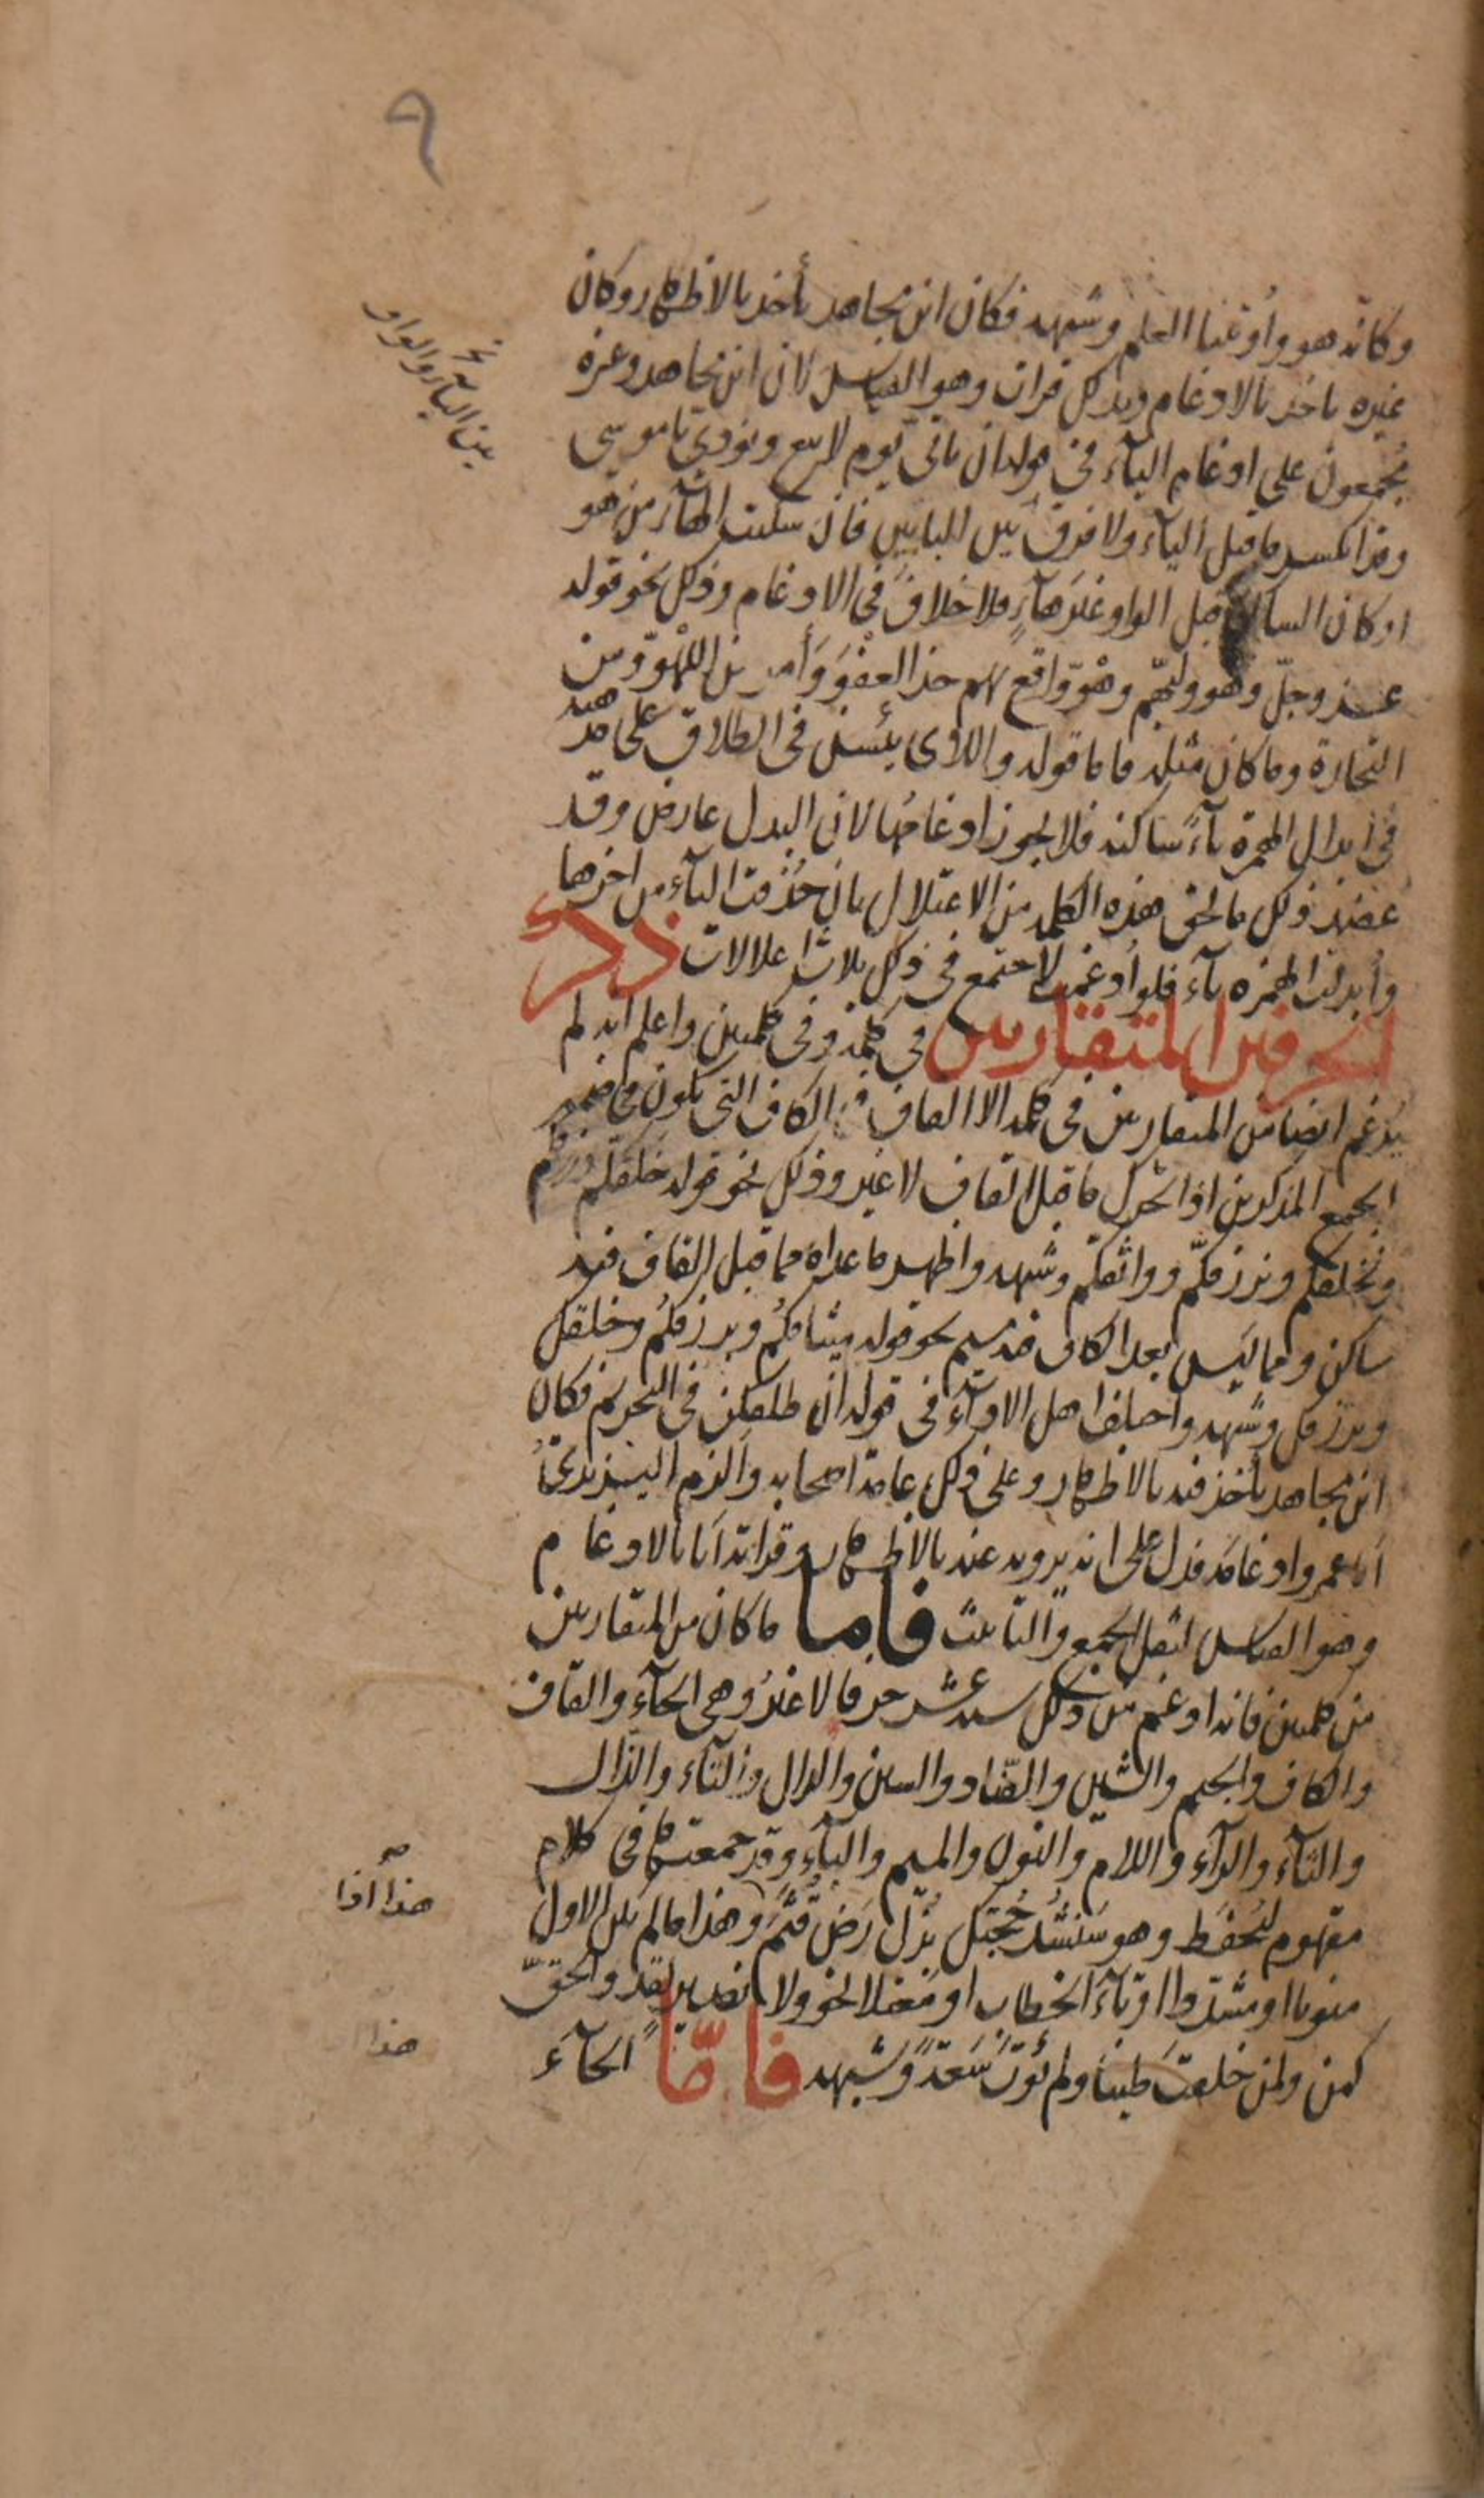 ٩
وكانّه هو وأوتينا العلم وشبهه فكان ابن مجاهد يأخذ بالاظهار وكان
غيره ياخذ بالادغام وبذلك قرات وهو القياس لان ابن مجاهد وغيره
مجمعون على ادغام اليآء في الياء في قوله ان ياتي يوم لا بيع ونودي يا موسى
وقد انكسر ما قبل اليآء ولا فرق بين البابين فان سكنت الهآء من هو
او كان الساكن قبل الواو غير هآءٍ فلا خلاف في الادغام وذلك نحو قوله
عز وجلّ وهو وليّهم وهو واقع بهم خذ العفو وأمر من اللهو ومن
التجارة وما كان مثله فاما قوله واللاى يئسن في الطلاق على مذهبه
في ابدال الهمزة يآءً ساكنه فلا يجوز ادغامها لان البدل عارض وقد
عضد ذلك ما لحق هذه الكلمه من الاعتلال بان حُذفت اليآء من اخرها
وأبدلت الهمزه يآء فلو أدغمت لاجتمع في ذلك ثلاث اعلالات ذكر
الحرفين المتقاربين في كلمة وفي كلمتين واعلم انه لم
يدغم ايضا من المتقاربين في كلمه الا القاف في الكاف التي تكون في ضمير
الجمع المذكرين اذا تحرك ما قبل القاف لا غير وذلك نحو قوله خلقكم ورزقكم
ونخلقكم ونرزقكم وواثقكم وشبهه واظهر ما عداه مما قبل القاف فيه
ساكن ومما ليس بعد الكاف فيه ميم نحو قوله ميثاقكم وبورقكم وخلقك
ونرزقك وشبهه واختلف اهل الاداء في قوله ان طلقكن في التحريم فكان
ابن مجاهد يأخذ فيه بالاظهار وعلى ذلك عامة اصحابه والزم اليزيديُّ
أبا عمرو ادغامه فدل على انه يرويه عنه بالاظهار وقراته أنا بالادغام
وهو القياس لثقل الجمع والتأنيث فاما ما كان من المتقاربين
من كلمتين فانه ادغم من ذلك ستة عشر حرفا لا غيرُ وهي الحآء والقاف
والكاف والجيم والشين والضّاد والسين والدال والتآء والذّال
والثآء والرآء واللام والنون والميم والبآء وقد جمعتها في كلام
مفهوم ليُحفَظ وهو سَنَشُدُّ حُجَّتَك بُذِّلَ رَضَّ قُثَمَ وهذا ما لم يكن الاول
منونا او مشدّدا او تآء الخطاب او معتلا نحو ولا نصير لقد والحقّ
كمن ولمن خلقتَ طينا ولم يُؤتَ سَعَةً وشبهه فأمّا الحآء
بين اليآء والواو
هذا اذا
هذا